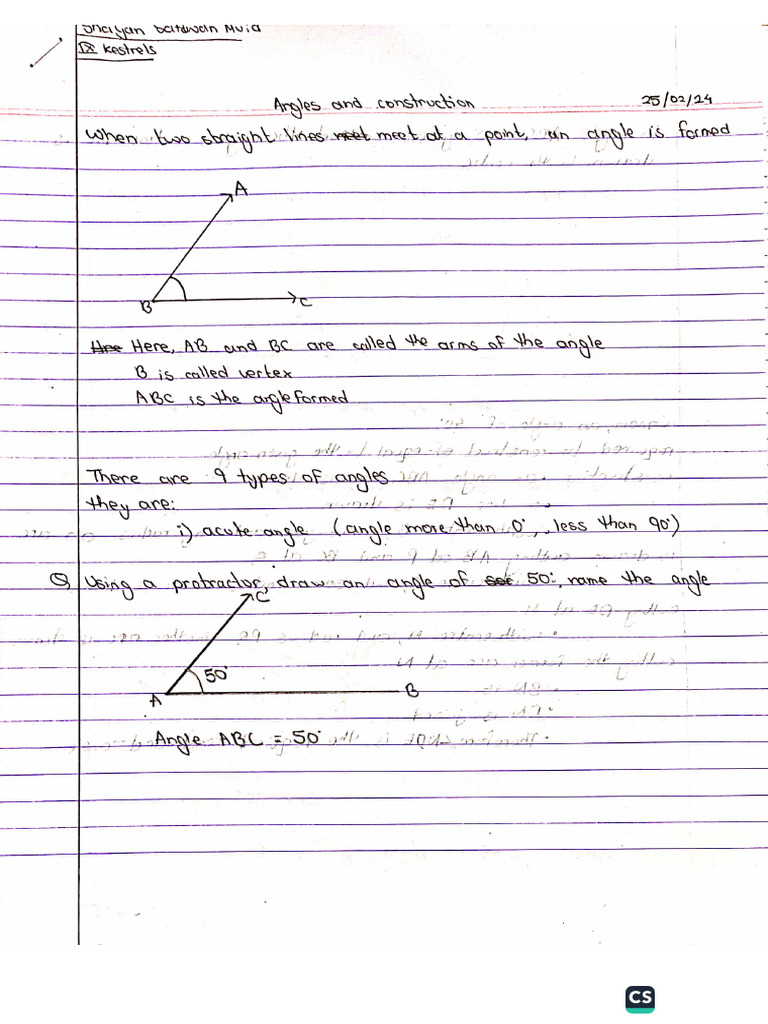 Shayan
IX Kestrels
Angles and construction 25/02/24
When two straight lines meet meet at a point, an angle is formed
A
B
C
Hre Here, AB and BC are called the arms of the angle
B is called vertex
ABC is the angle formed
There are 9 types of angles
they are:
i) acute angle (angle more than 0°, less than 90°)
Q Using a protractor, draw an angle of 50°, name the angle
C
50°
A
B
Angle ABC = 50°
CS